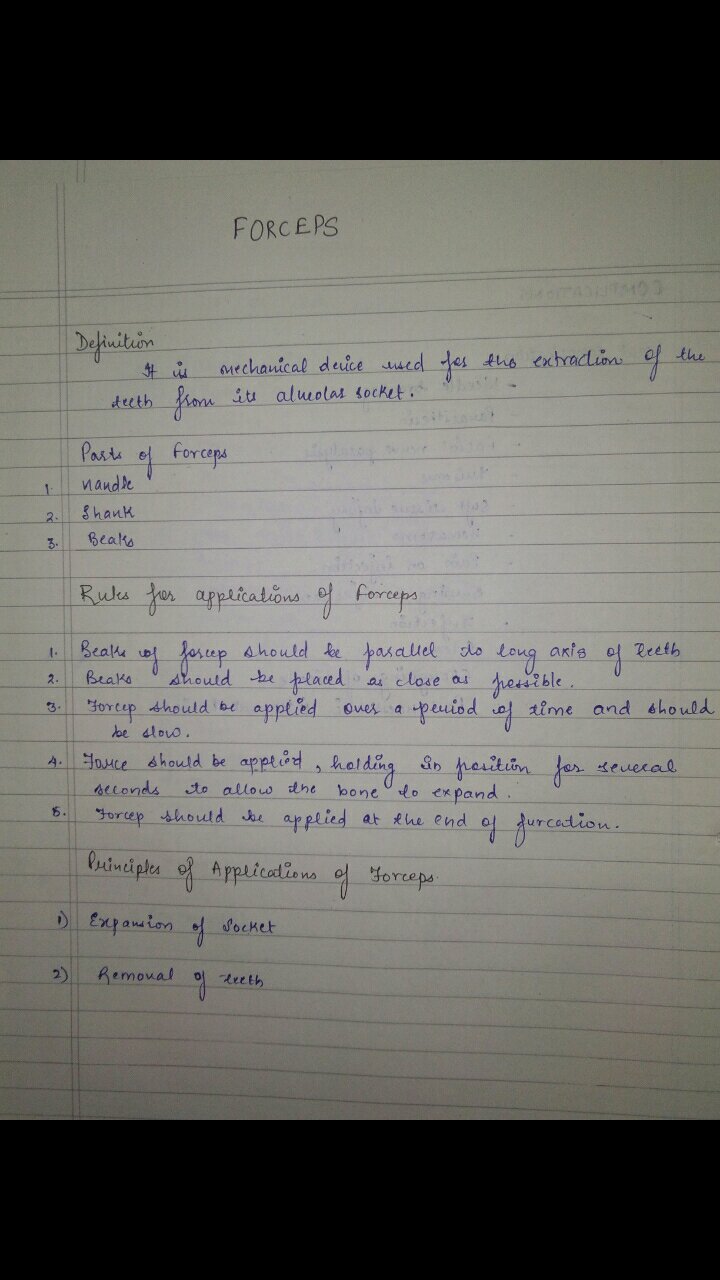 FORCEPS
Definition
It is mechanical device used for the extraction of the
teeth from its alveolar socket.
Parts of Forceps
1. Handle
2. Shank
3. Beaks
Rules for applications of Forceps
1. Beaks of forcep should be parallel to long axis of teeth
2. Beaks should be placed as close as possible.
3. Forcep should be applied over a period of time and should
be slow.
4. Force should be applied, holding in position for several
seconds to allow the bone to expand.
5. Forcep should be applied at the end of furcation.
Principles of Applications of Forceps.
1) Expansion of Socket
2) Removal of teeth